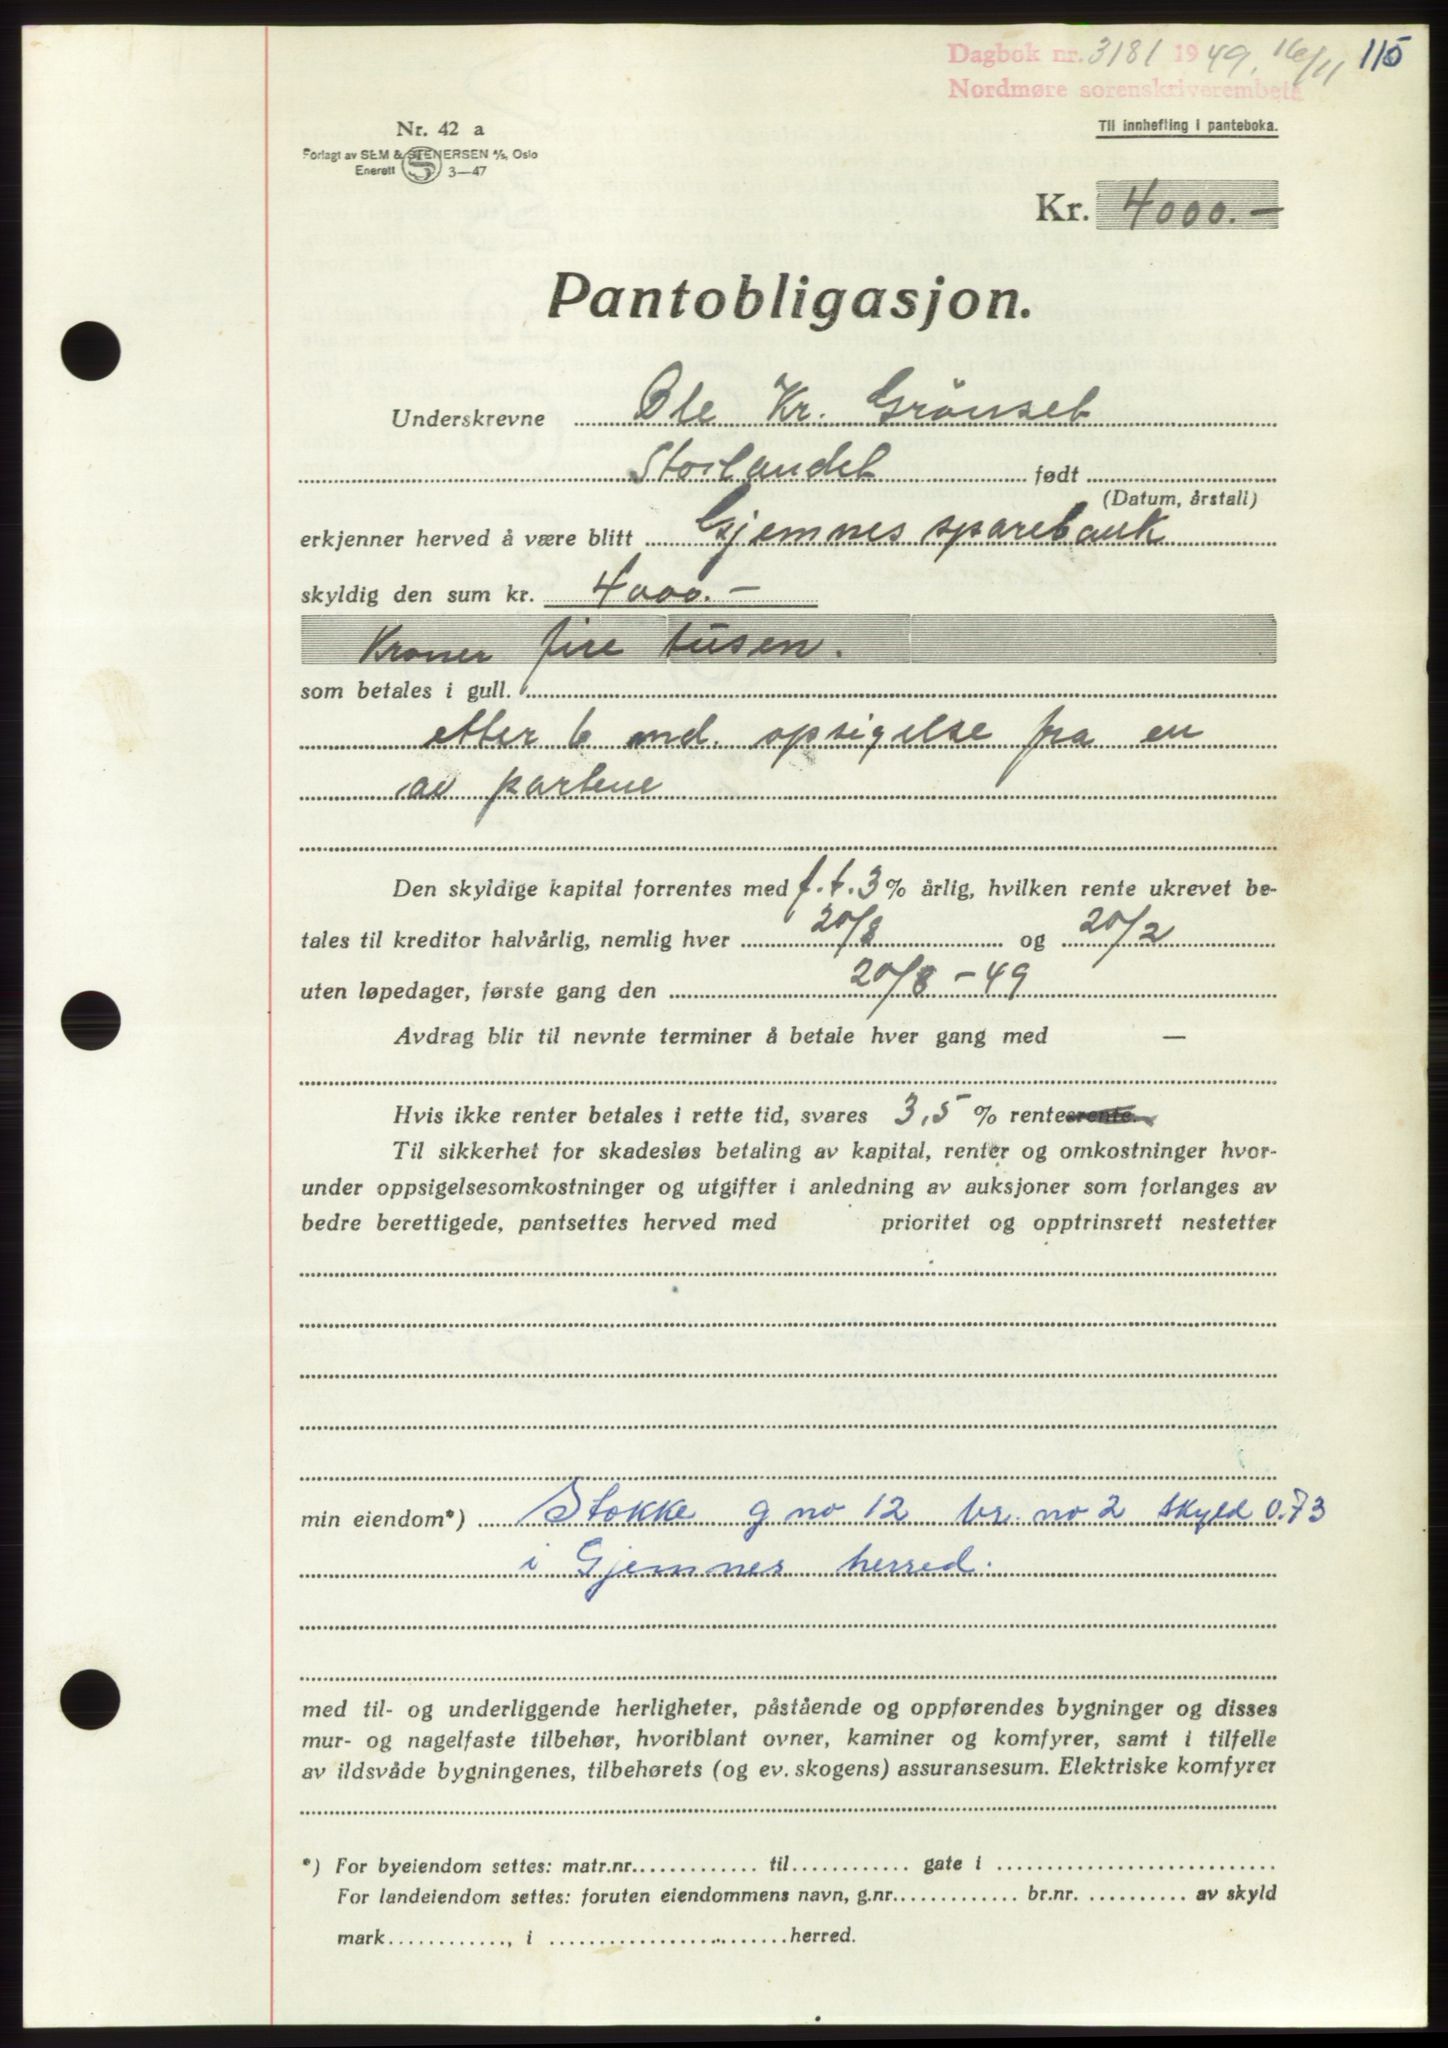 Dagbok nr. 3181 1949, 16/11 115
Nordmøre sorenskriverembete
Nr. 42 a
Til innhefting i panteboka.
Forlagt av SEM & STENERSEN A/S, Oslo
Enerett S 3—47
Kr. 4000.—
Pantobligasjon.
Underskrevne Ole Kr. Grönset
Storlandet født
(Datum, årstall)
erkjenner herved å være blitt Gjemnes sparebank
skyldig den sum kr. 4000.—
Kroner fire tusen.
som betales i gull.
etter 6 md. opsigelse fra en
av partene
Den skyldige kapital forrentes med f.t. 3 % årlig, hvilken rente ukrevet be-
tales til kreditor halvårlig, nemlig hver 20/8 og 20/2
uten løpedager, første gang den 20/8 - 49
Avdrag blir til nevnte terminer å betale hver gang med —
Hvis ikke renter betales i rette tid, svares 3,5 % rentesrente.
Til sikkerhet for skadesløs betaling av kapital, renter og omkostninger hvor-
under oppsigelsesomkostninger og utgifter i anledning av auksjoner som forlanges av
bedre berettigede, pantsettes herved med prioritet og opptrinsrett nestetter
min eiendom*) Stokke g no 12 br. no 2 skyld 0.73
i Gjemnes herred.
med til- og underliggende herligheter, påstående og oppførendes bygninger og disses
mur- og nagelfaste tilbehør, hvoriblant ovner, kaminer og komfyrer, samt i tilfelle
av ildsvåde bygningenes, tilbehørets (og ev. skogens) assuransesum. Elektriske komfyrer
*) For byeiendom settes: matr.nr. til gate i
For landeiendom settes: foruten eiendommens navn, g.nr. br.nr. av skyld
mark , i herred.